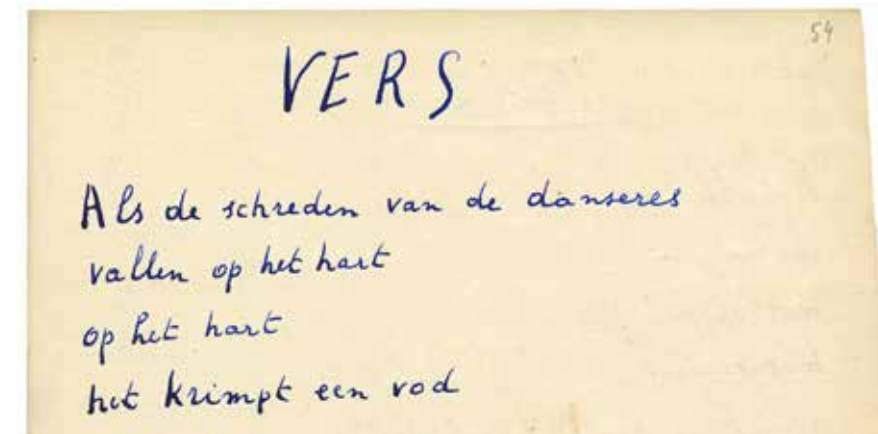 54
VERS
Als de schreden van de danseres
vallen op het hart
op het hart
het krimpt een vod